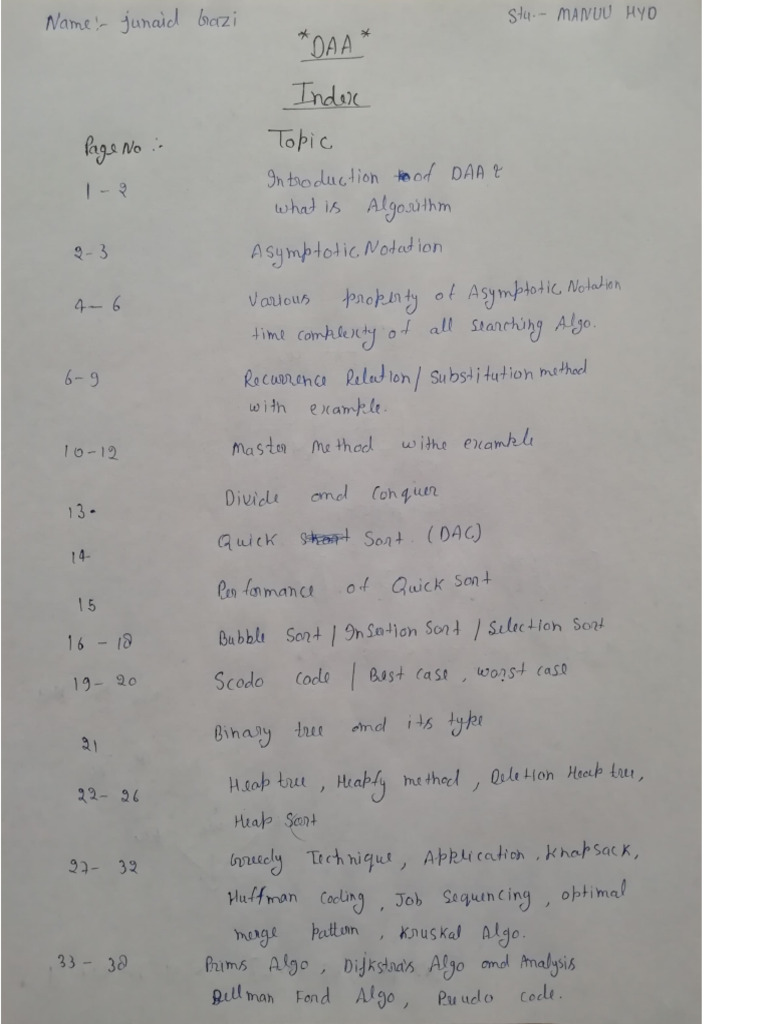 Name:- junaid Gazi
Stu.- MANUU HYD
*DAA*
Index
Page No :- Topic
1 - 2 Introduction of DAA &
what is Algorithm
2-3 Asymptotic Notation
4 - 6 Various property of Asymptotic Notation
time complexty of all searching Algo.
6-9 Recurrence Relation/ Substitution method
with example.
10-12 Master Method withe example
13. Divide and Conquer
14 Quick Sort (DAC)
15 Performance of Quick Sort
16 - 18 Bubble Sort / Insetion Sort / Selection Sort
19- 20 Scodo Code / Best case, worst case
21 Binary tree and its type
22- 26 Heap tree, Heapfy method, Deletion Heap tree,
Heap Sort
27- 32 Greedy Technique, Application, Knapsack,
Huffman Coding, Job Sequencing, optimal
merge pattern, Kruskal Algo.
33 - 38 Prims Algo, Dijkstra's Algo and Analysis
Bellman Ford Algo, Psuudo code.